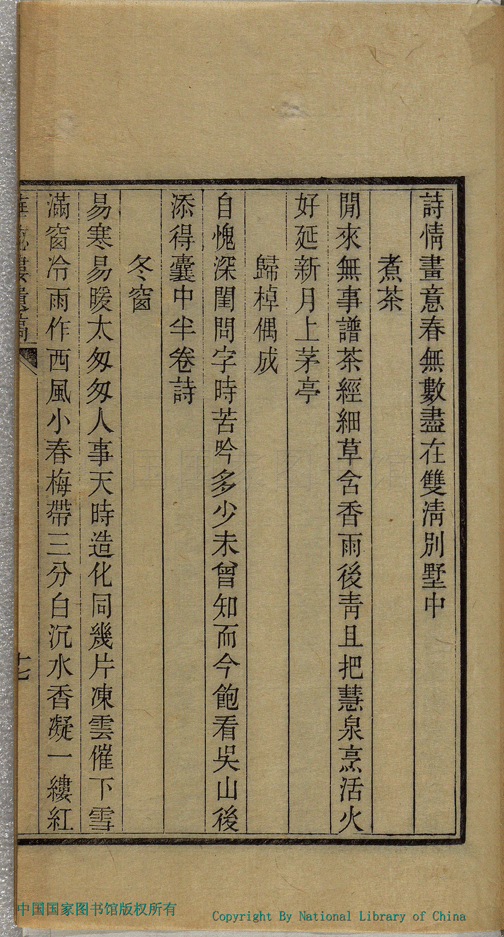 詩情畫意春無數盡在雙淸別墅中
煮茶
閒來無事譜茶經細草含香雨後靑且把慧泉烹活火
好延新月上茅亭
歸棹偶成
自愧深閨問字時苦吟多少未曾知而今飽看吳山後
添得囊中半卷詩
冬窗
易寒易暖太匆匆人事天時造化同幾片凍雲催下雪
滿窗冷雨作西風小春梅帶三分白沉水香凝一縷紅
樓遺稿
七
中国国家图书馆版权所有
Copyright By National Library of China